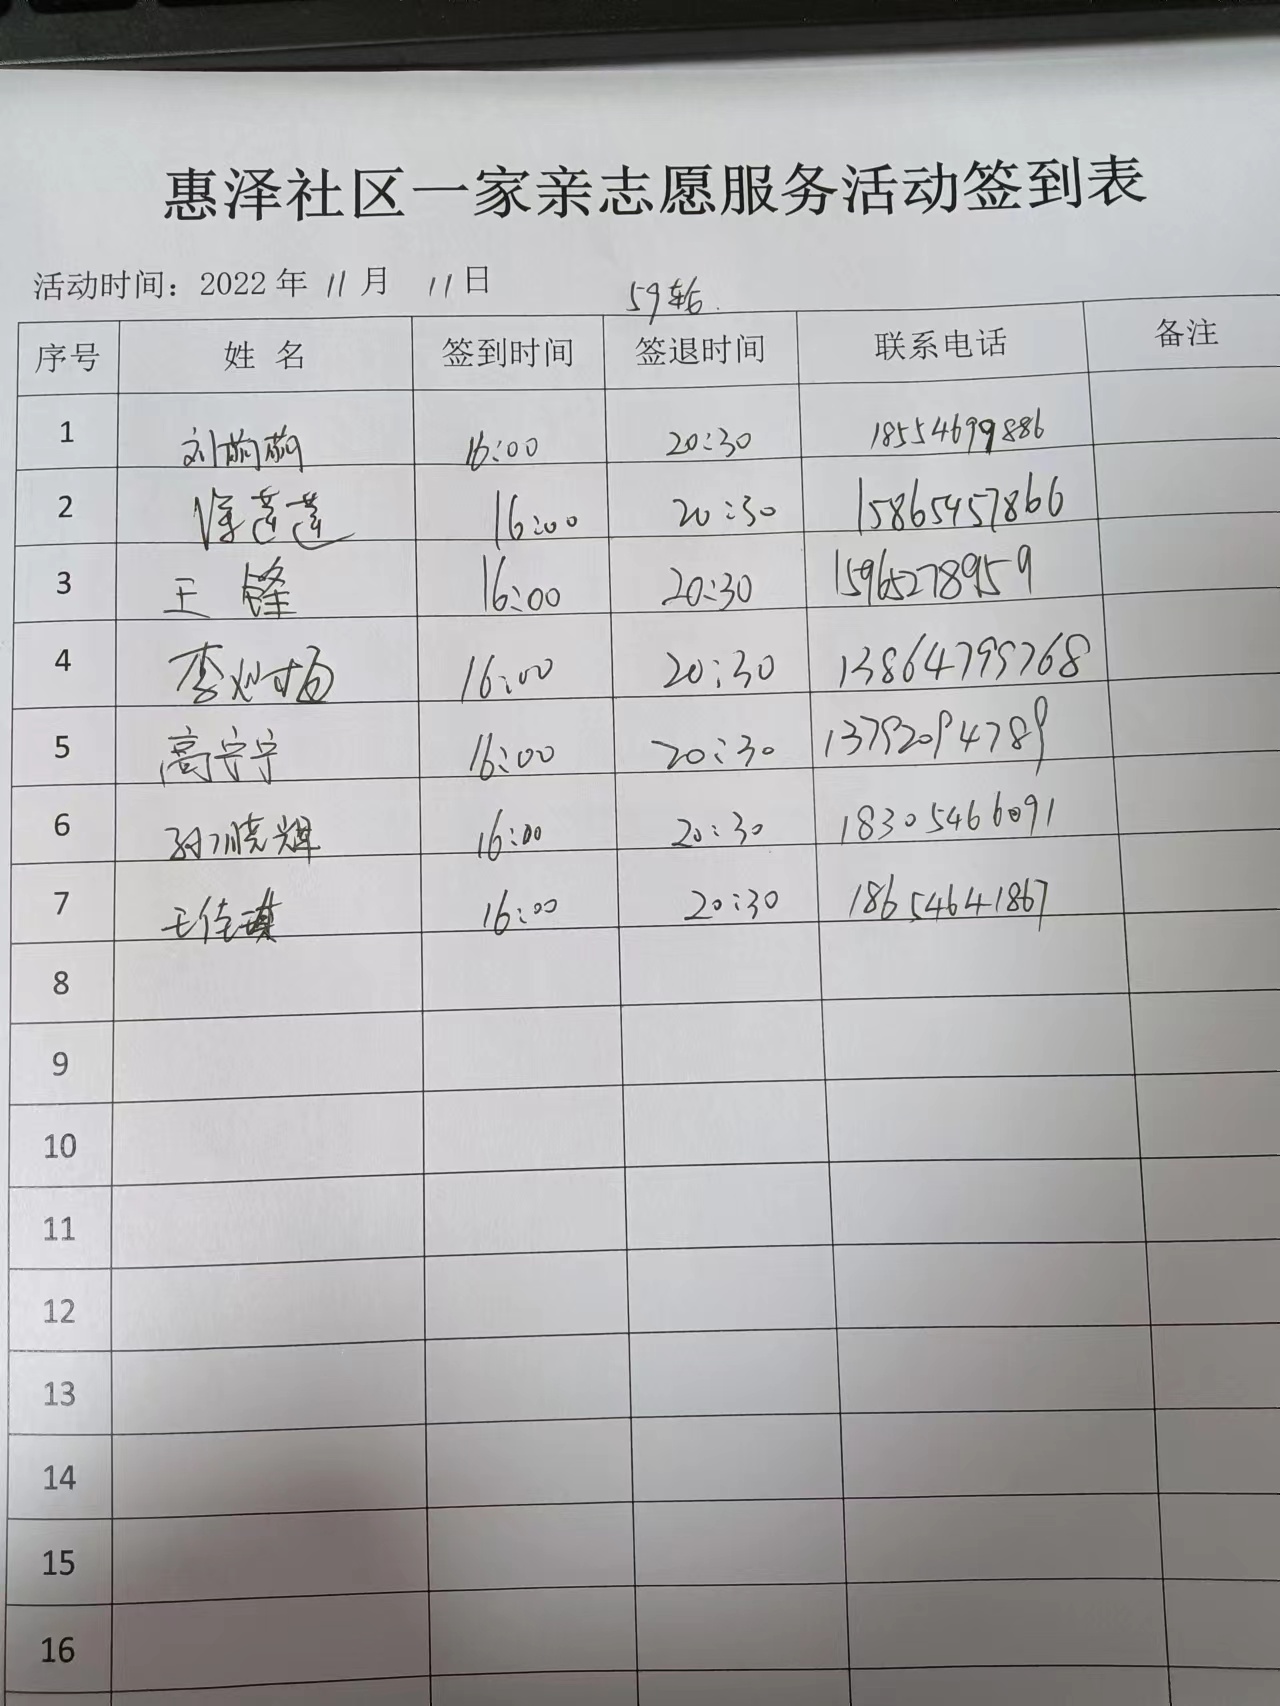 惠泽社区一家亲志愿服务活动签到表
活动时间：2022 年 11 月 11 日 59轮
序号 姓 名 签到时间 签退时间 联系电话 备注
1 刘萌萌 16:00 20:30 18554699886
2 徐莲莲 16:00 20:30 15865457866
3 王 锋 16:00 20:30 15965278959
4 李 16:00 20:30 13864795768
5 高宁宁 16:00 20:30 13792094789
6 孙晓辉 16:00 20:30 18305466091
7 王佳琪 16:00 20:30 18654641867
8
9
10
11
12
13
14
15
16